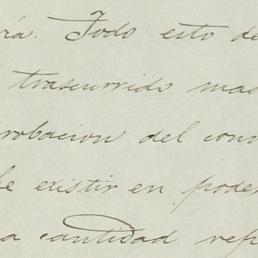 rá. Todo esto de
trascurrido mas
robacion del con
be existir en poder
a cantidad ref